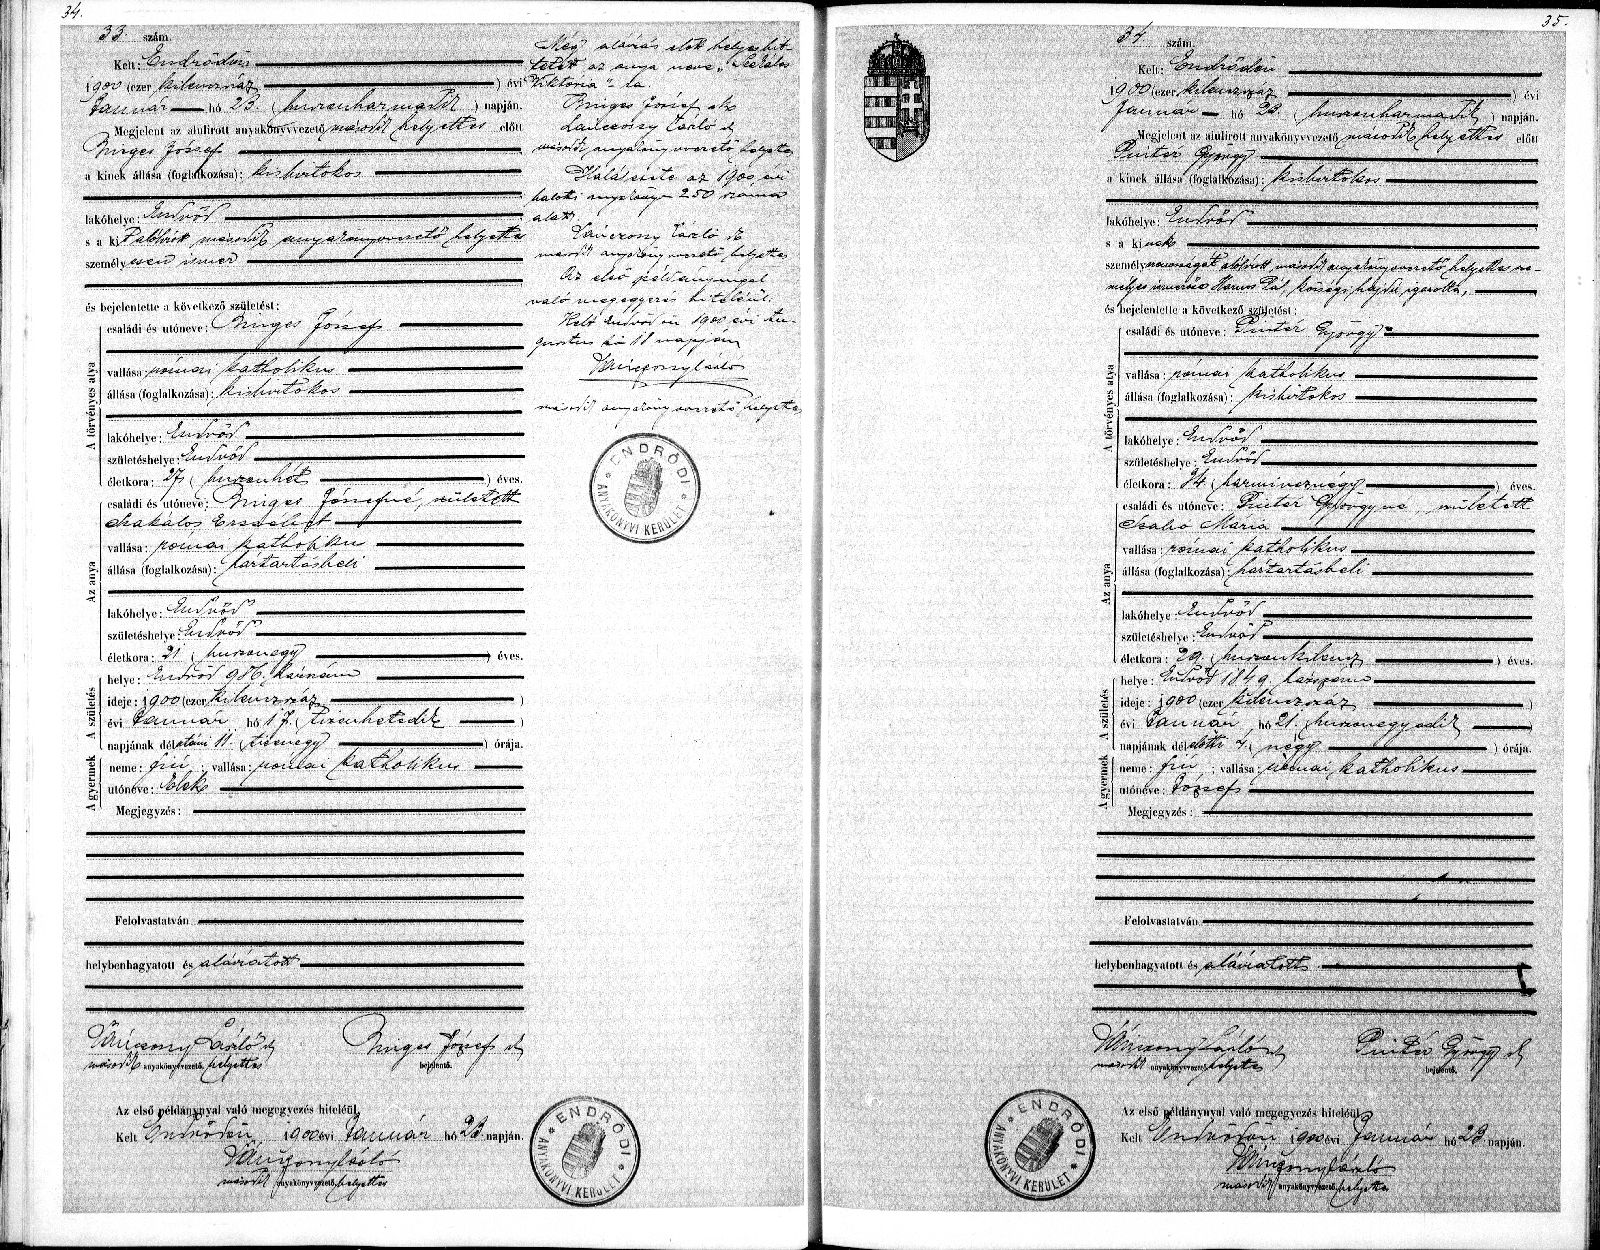 34.
33. szám.
Kelt: Endrődön
1900 (ezer kilenczszáz) évi
Január hó 23. (huszonharmadik) napján.
Megjelent az alulirott anyakönyvvezető második helyettes előtt
József
a kinek állása (foglalkozása): kisbirtokos
lakóhelye: Endrőd
s a kit alólirott második anyakönyvvezető helyettes
személyesen ismer
és bejelentette a következő születést:
A törvényes atya
családi és utóneve: József
vallása: római katholikus
állása (foglalkozása): kisbirtokos
lakóhelye: Endrőd
születéshelye: Endrőd
életkora: 27 (huszonhét) éves.
Az anya
családi és utóneve: Józsefné, született
Szakálos Erzsébet
vallása: római katholikus
állása (foglalkozása): háztartásbeli
lakóhelye: Endrőd
születéshelye: Endrőd
életkora: 21 (huszonegy) éves.
A születés
helye: Endrőd 986. házszám
ideje: 1900 (ezer kilenczszáz)
évi Január hó 17. (tizenhetedik)
napjának délutáni 11. (tizenegy) órája.
A gyermek
neme: fiú; vallása: római katholikus
utóneve: Elek
Megjegyzés:
Felolvastatván
helybenhagyatott és aláiratott
László
József
második anyakönyvvezető, helyettes
bejelentő.
Az első példánynyal való megegyezés hiteléül
Kelt Endrődön 1900 évi Január hó 23 napján.
László
második anyakönyvvezető, helyettes
ENDRŐDI
ANYAKÖNYVI KERÜLET
Még aláirás előtt helyesbit-
tetett az anya neve „Szakálos
Viktória" ra
József
László
második anyakönyvvezető helyettes
Halálesete az 1900 évi
halotti anyakönyv 250 száma
alatt.
László
második anyakönyvvezető helyettes
Az első példánynyal
való megegyezés hiteléül.
Kelt Endrődön 1900 évi Au-
gusztus hó 11 napján
László
második anyakönyvvezető, helyettes
ENDRŐDI
ANYAKÖNYVI KERÜLET
35.
34 szám.
Kelt: Endrődön
1900 (ezer kilenczszáz) évi
Január hó 23. (huszonharmadik) napján.
Megjelent az alulirott anyakönyvvezető második helyettes előtt
Pintér György
a kinek állása (foglalkozása): kisbirtokos
lakóhelye: Endrőd
s a kinek
személyazonosságát alólirott második anyakönyvvezető helyettes sze-
mélyes ismerőse Pál, községi hajdú igazolta,
és bejelentette a következő születést:
A törvényes atya
családi és utóneve: Pintér György
vallása: római katholikus
állása (foglalkozása): kisbirtokos
lakóhelye: Endrőd
születéshelye: Endrőd
életkora: 34 (harmincznégy) éves.
Az anya
családi és utóneve: Pintér Györgyné, született
Szabó Mária
vallása: római katholikus
állása (foglalkozása): háztartásbeli
lakóhelye: Endrőd
születéshelye: Endrőd
életkora: 29 (huszonkilencz) éves.
A születés
helye: Endrőd 1849. házszám
ideje: 1900 (ezer kilenczszáz)
évi Január hó 21. (huszonegyedik)
napjának délelőtti 4. (négy) órája.
A gyermek
neme: fiú; vallása: római katholikus
utóneve: József
Megjegyzés:
Felolvastatván
helybenhagyatott és aláiratott
László
Pintér György
második anyakönyvvezető, helyettes
bejelentő.
Az első példánynyal való megegyezés hiteléül
Kelt Endrődön 1900 évi Január hó 23 napján.
László
második anyakönyvvezető, helyettes
ENDRŐDI
ANYAKÖNYVI KERÜLET